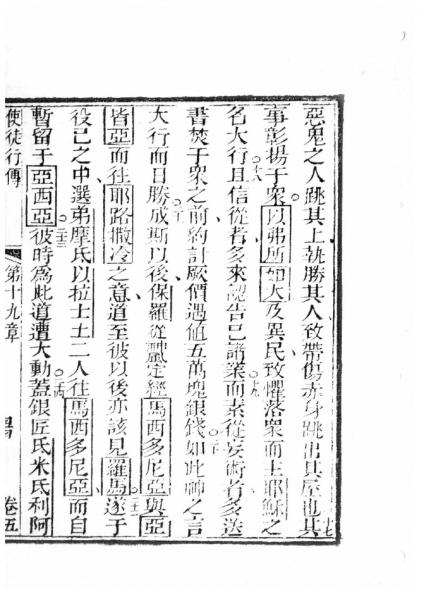 惡鬼之人跳其上執勝其人致帶傷赤身跳出其屋也其十七
事彰揚于衆以弗所如大及異民致懼落衆而主耶穌之
名大行且信從者多來認告己諸業而素從妄術者多送十八十九
書焚于衆之前約計厥價遇值五萬塊銀錢如此神之言
大行而日勝成斯以後保羅從靈定經馬西多尼亞與亞二十
皆亞而往耶路撒冷之意道至彼以後亦該見羅馬遂于
役己之中選弟摩氏以拉士土二人往馬西多尼亞而自
暫留于亞西亞彼時為此道遭大動蓋銀匠氏米氏利阿二十三二十四
使徒行傳 第十九章 卷五